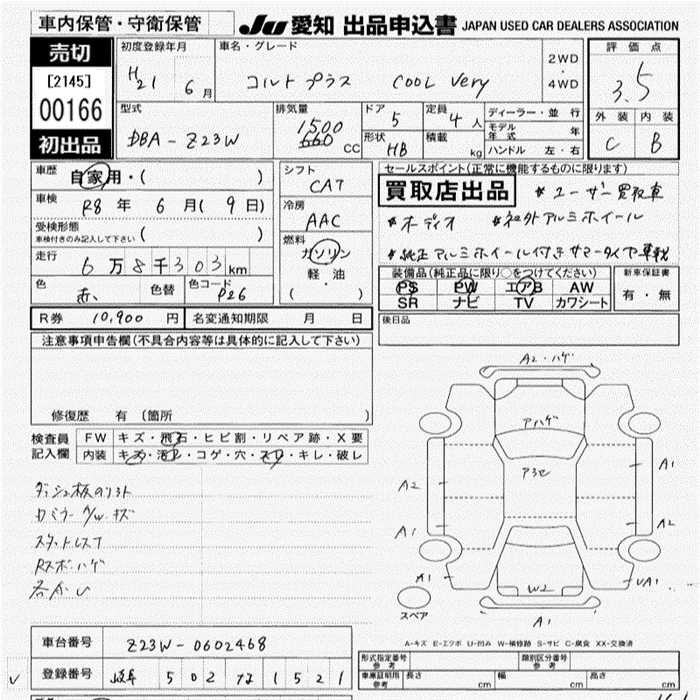 車内保管・守衛保管
JU 愛知 出品申込書 JAPAN USED CAR DEALERS ASSOCIATION
売切
[2145]
00166
初出品
初度登録年月
H21 6月
車名・グレード
コルトプラス COOL Very
2WD
・
4WD
評価点
3.5
外装 内装
C B
型式
DBA-Z23W
排気量
1500
660 CC
ドア
5
形状
HB
定員
4人
積載
kg
ディーラー・並行
モデル年式 年
ハンドル 左・右
車歴
自家用・( )
車検
R8年 6月(9日)
受検形態
車検付きのみ記入して下さい ( )
走行
6万8千303km
色
赤
色替
色コード
P26
シフト
CAT
冷房
AAC
燃料
ガソリン
軽油
・
( )
セールスポイント(正常に機能するものに限ります)
買取店出品 *ユーザー買取車
*オーディオ *社外アルミホイール
*純正アルミホイール付きサマータイヤ車載
装備品(純正品に限り○をつけてください)
PS PW エアB AW
SR ナビ TV カワシート
新車保証書
有・無
R券 10,900円 名変通知期限 月 日
後日品
注意事項申告欄(不具合内容等は具体的に記入して下さい)
修復歴 有 (箇所 )
検査員記入欄
FW キズ・飛石・ヒビ割・リペア跡・X要
内装 キズ・汚レ・コゲ・穴・スリ・キレ・破レ
ダッシュ板のリフト
カミラーA/W.キズ
スタットレスT
Rスポハゲ
A2・ハゲ
アハゲ
ア3セ
A2
A1
A1
A1
A2
UA1
W2
A1
スペア
A-キズ E-エクボ U-凹み W-補修跡 S-サビ C-腐食 XX-交換済
車台番号 Z23W-0602468
登録番号 岐阜 502 な 1521
形式指定番号
参考
類別区分番号
参考
車庫証明用
参考
長さ cm 幅 cm 高さ cm